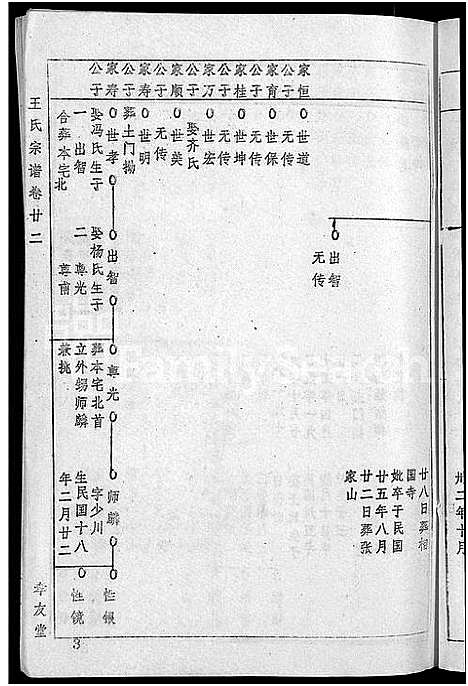 廿八日葬相
国寺
妣卒于民国
廿五年八月
廿二日葬张
家山
出智
无传
家恒
公子
世道
无传
家育
公子
世保
无传
家桂
公子
世坤
无传
家万
公子
世宏
娶齐氏
家顺
公子
世美
无传
家寿
公子
世明
葬土门拗
家寿
公子
世孝
娶冯氏生子
一 出智
合葬本宅北
出智
娶杨氏生子
二 尊光
尊甫
尊光
葬本宅北首
立外甥师麟
兼挑
师麟
字少川
生民国十八
年二月廿二
性银
性镜
王氏宗谱卷廿二
孝友堂
3
卅二年十月